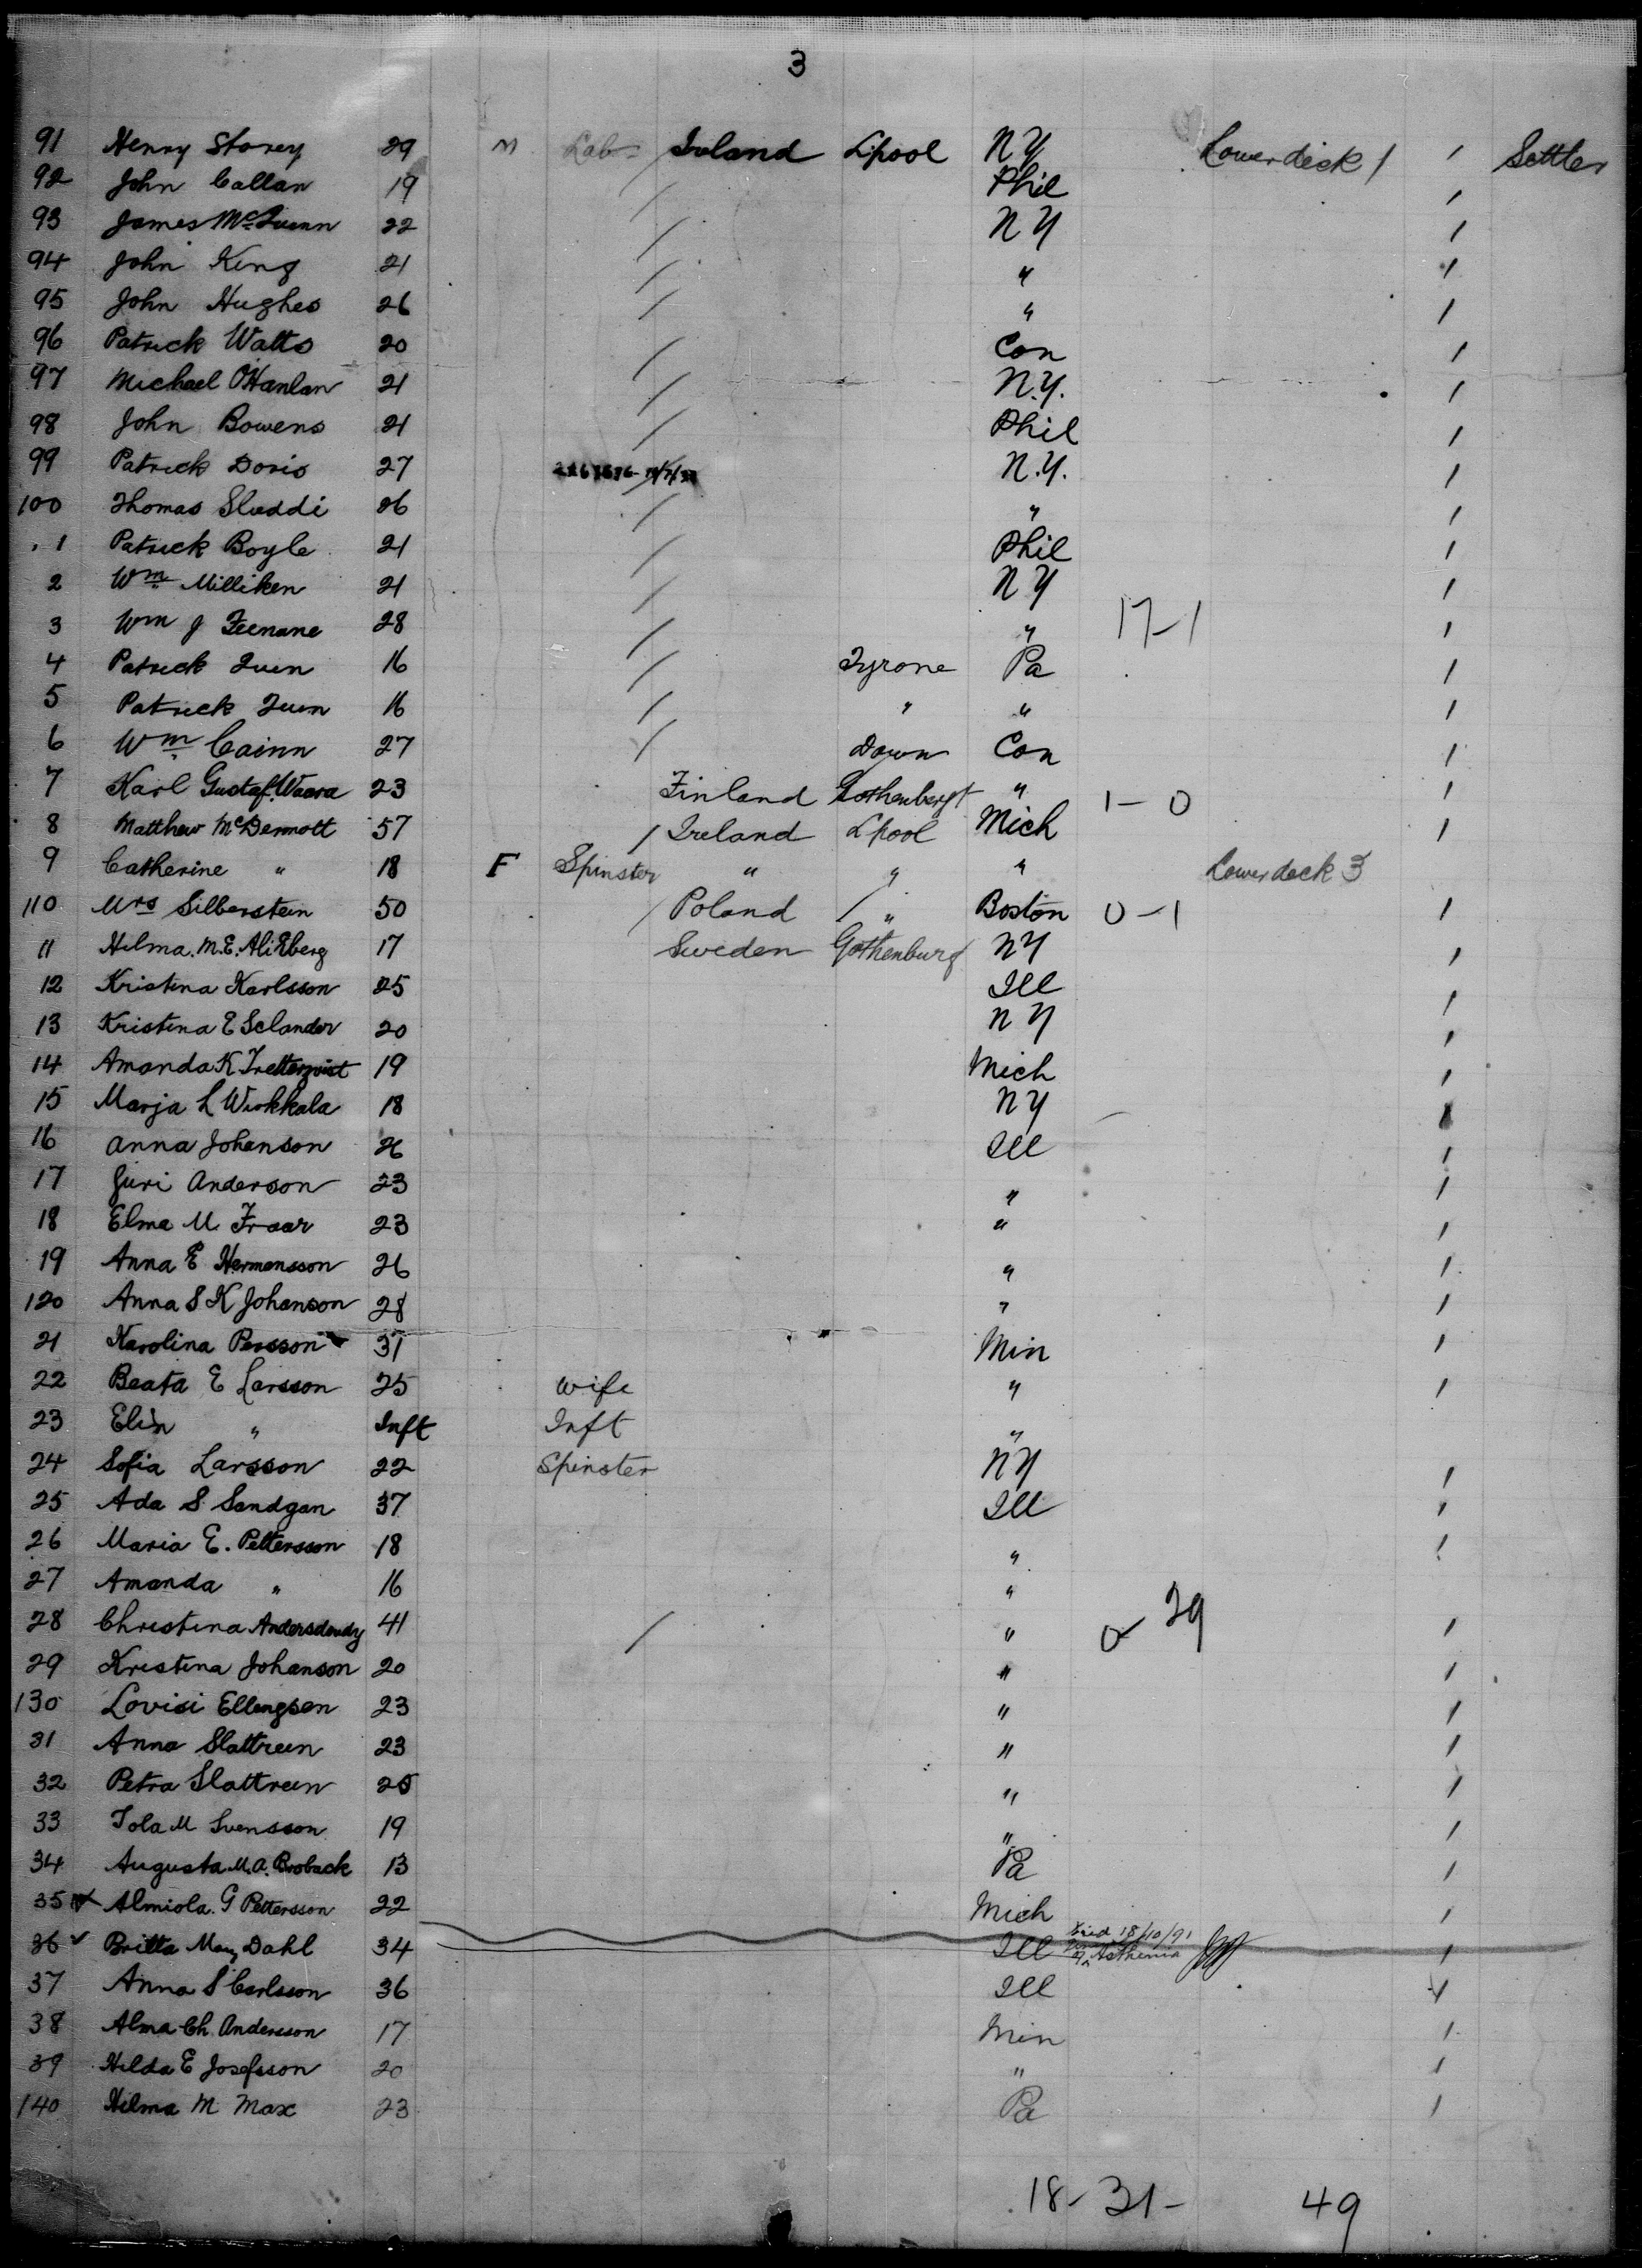 3
91 Henry Storey 29 M Lab Ireland Lpool NY Lower deck 1 / Settler
92 John Callan 19 / Phil /
93 James McQuinn 22 / NY /
94 John King 21 / " /
95 John Hughes 26 / " /
96 Patrick Watts 20 / Con /
97 Michael O'Hanlan 21 / N.Y. /
98 John Bowens 21 / Phil /
99 Patrick Doris 27 / N.Y. /
100 Thomas Sluddi 26 / " /
1 Patrick Boyle 21 / Phil /
2 Wm Milliken 21 / NY /
3 Wm J Feenane 28 / " 17-1 /
4 Patrick Quin 16 / Tyrone Pa /
5 Patrick Quin 16 / " " /
6 Wm Cainn 27 / Down Con /
7 Karl Gustaf Waara 23 Finland Gothenbergt " 1-0 /
8 Matthew McDermott 57 / Ireland Lpool Mich /
9 Catherine " 18 F Spinster " " " Lower deck 3
110 Mrs Silberstein 50 / Poland / " Boston 0-1 /
11 Hilma. M.E. 17 Sweden Gothenburg NY /
12 Kristina Karlsson 25 Ill /
13 Kristina E Selander 20 NY /
14 Amanda K 19 Mich /
15 Marja L Wirkkala 18 NY /
16 Anna Johanson 26 Ill /
17 Guri Anderson 23 " /
18 Elma M Fraar 23 " /
19 Anna E Hermansson 26 " /
120 Anna S K Johanson 28 " /
21 Karolina Persson 31 Min /
22 Beata E Larsson 25 Wife " /
23 Elin " Inft Inft "
24 Sofia Larsson 22 Spinster NY /
25 Ada S Sandgan 37 Ill /
26 Maria E. Pettersson 18 " /
27 Amanda " 16 "
28 Christina 41 / " 0-29 /
29 Kristina Johanson 20 " /
130 Lovisi Ellengsen 23 " /
31 Anna Slattreen 23 " /
32 Petra Slattreen 25 " /
33 Tola M Svensson 19 " /
34 Augusta M.A. Broback 13 Pa /
35 Almiola. G Pettersson 22 Mich /
36 Britta Mary Dahl 34 Ill Died 18/10/91 Asthenia /
37 Anna S Carlsson 36 Ill /
38 Alma Ch. Andersson 17 Min /
39 Hilda E Josefsson 20 " /
140 Hilma M Max 23 Pa /
18-31- 49